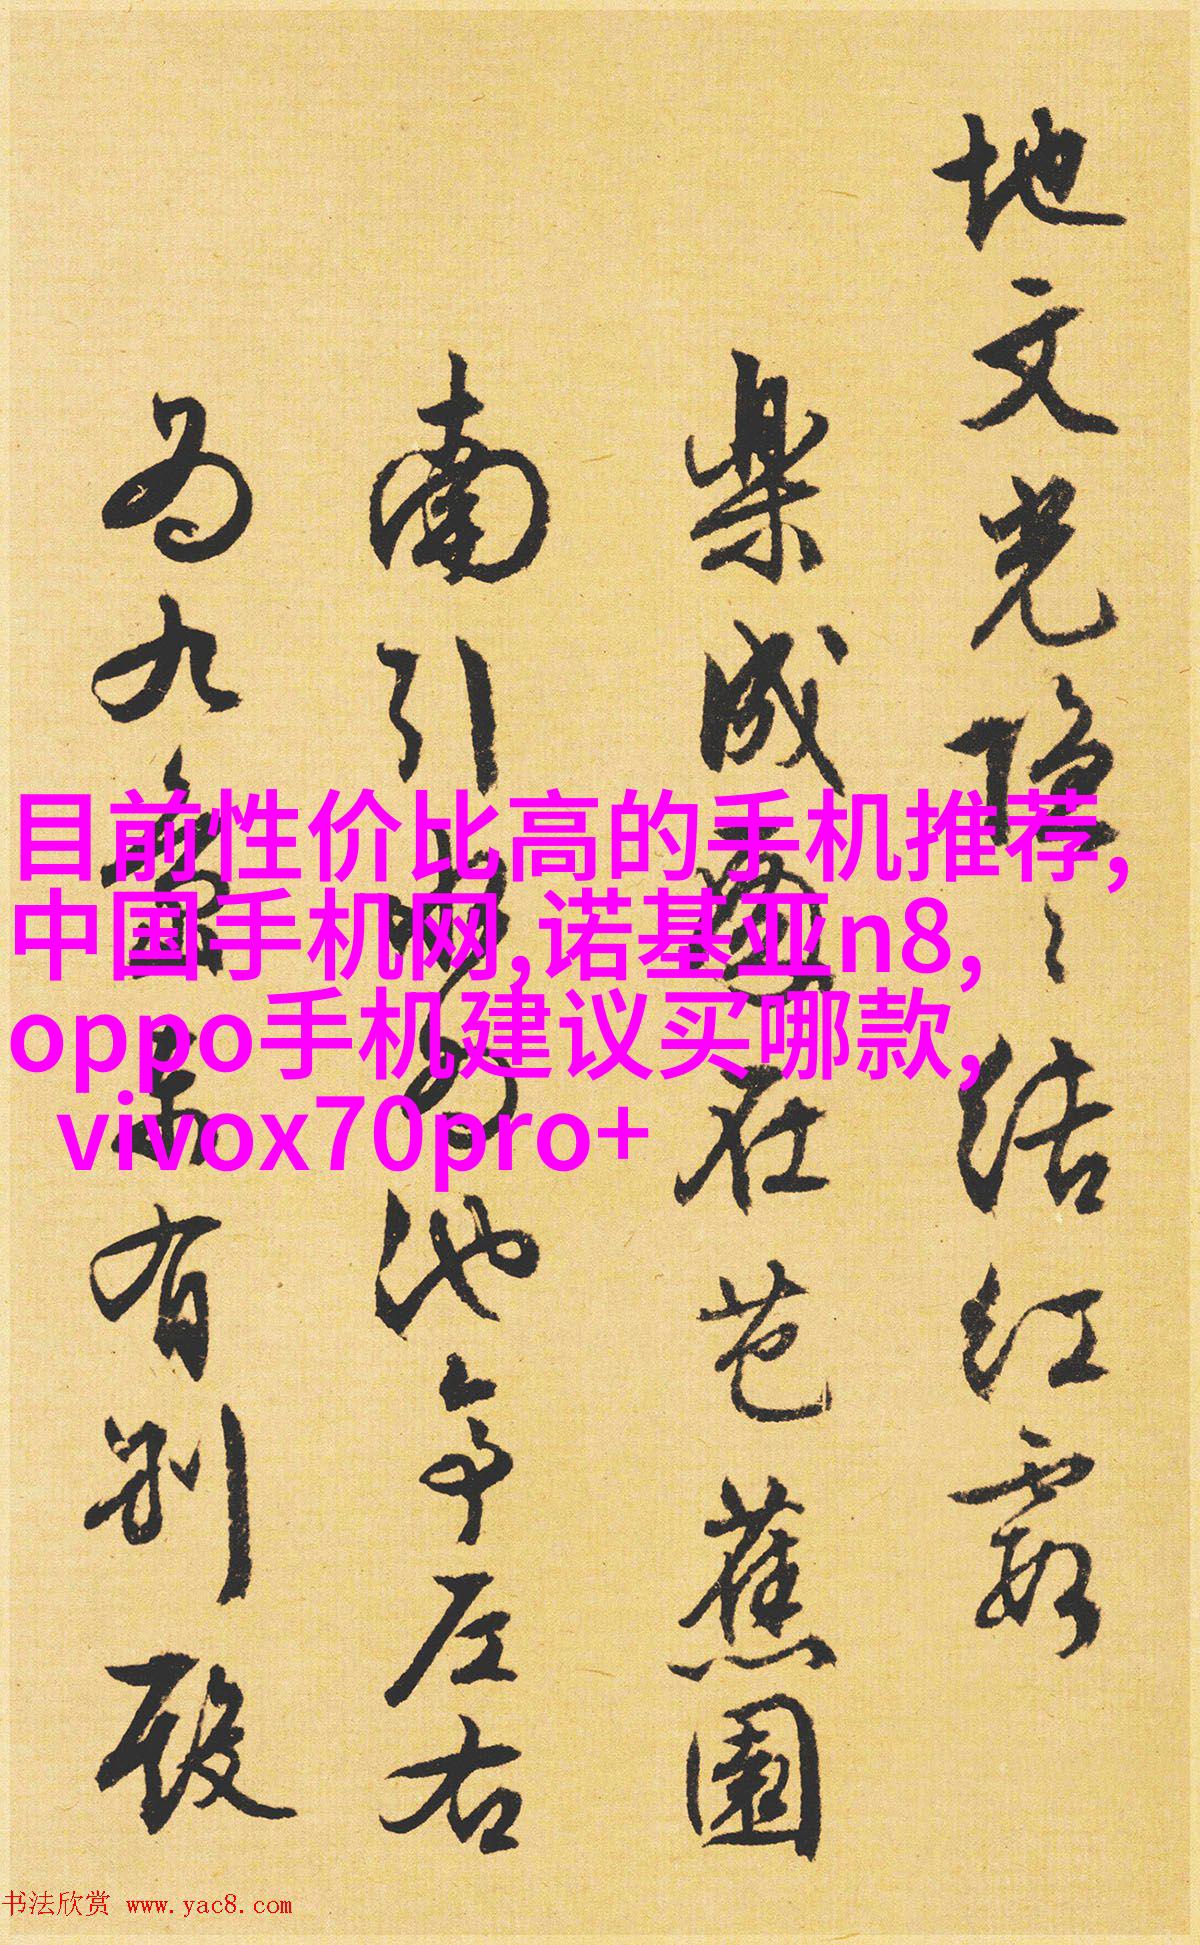 地文光隐〻结红霞
樂成在芭蕉園
南引池亭左右
为九有别殿
目前性价比高的手机推荐,
中国手机网,诺基亚n8,
oppo手机建议买哪款,
vivox70pro+
书法欣赏 www.yac8.com